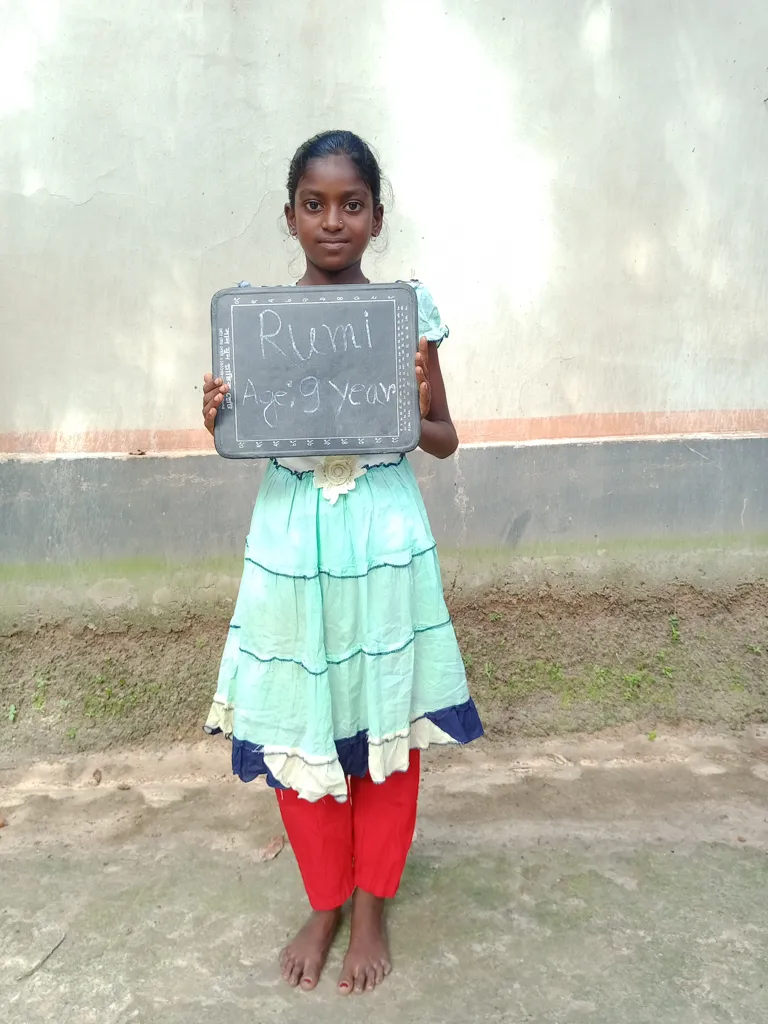 Rumi
Age: 9 year